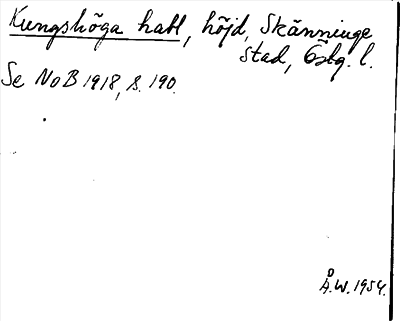 Kungshöga hatt, höjd, Skänninge
stad, Östg. l.
Se NoB 1918, s. 190.
Å.W. 1954.